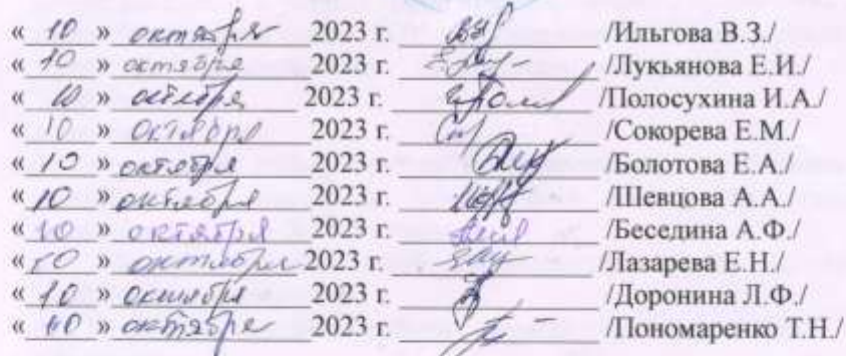 « 10 » октября 2023 г. /Ильгова В.З./
« 10 » октября 2023 г. /Лукьянова Е.И./
« 10 » октября 2023 г. /Полосухина И.А./
« 10 » октября 2023 г. /Сокорева Е.М./
« 10 » октября 2023 г. /Болотова Е.А./
« 10 » октября 2023 г. /Шевцова А.А./
« 10 » октября 2023 г. /Беседина А.Ф./
« 10 » октября 2023 г. /Лазарева Е.Н./
« 10 » октября 2023 г. /Доронина Л.Ф./
« 10 » октября 2023 г. /Пономаренко Т.Н./